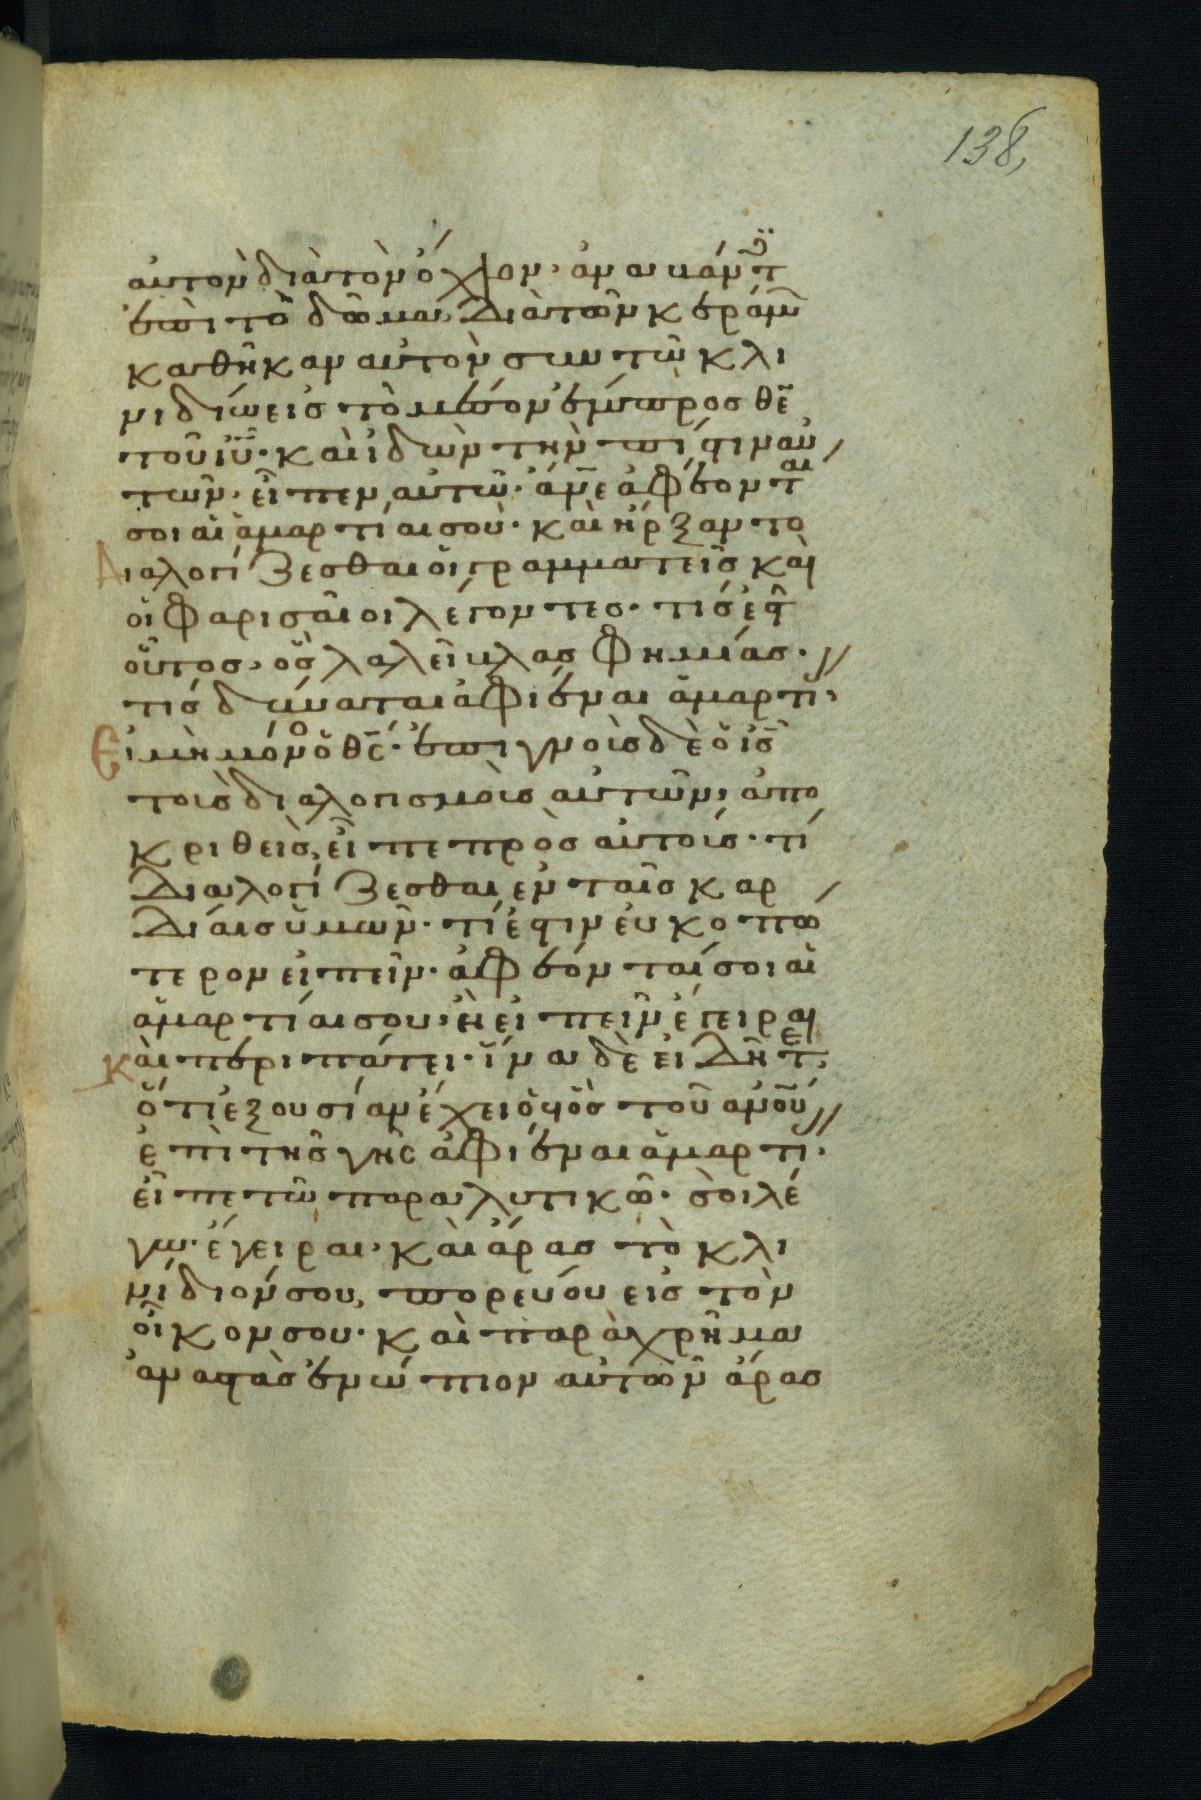 138,
αὐτὸν διὰ τὸν ὄχλον· ἀναβάντ
ἐπὶ τὸ δῶμα, διὰ τῶν κεράμ
καθῆκαν αὐτὸν σὺν τῷ κλι
νιδίῳ εἰς τὸ μέσον ἔμπροσθε
τοῦ ἰῦ· καὶ ἰδὼν τὴν πίστιν αὐ
τῶν· εἶπεν αὐτῷ· ἄνε ἀφέονται
σοι αἱ ἁμαρτίαι σου· καὶ ἤρξαντο
διαλογίζεσθαι οἱ γραμματεῖς καὶ
οἱ φαρισαῖοι λέγοντες· τίς ἐστ
οὗτος, ὃς λαλεῖ βλασφημίας·
τίς δύναται ἀφιέναι ἁμαρτί·
εἰ μὴ μόνο ὁ θς· ἐπιγνοὺς δὲ ὁ ἰς
τοὺς διαλογισμοὺς αὐτῶν, ἀπο
κριθεὶς, εἶπε πρὸς αὐτούς· τί
διαλογίζεσθαι ἐν ταῖς καρ
δίαις ὑμῶν· τί ἐστιν εὐκοπώ
τερον εἰπεῖν· ἀφέονταί σοι αἱ
ἁμαρτίαι σου· ἢ εἰπεῖν ἔγειραι
καὶ περιπάτει· ἵνα δὲ εἰδῆτε,
ὅτι ἐξουσίαν ἔχει ὁ υἱὸς τοῦ ἀνου
ἐπὶ τῆς γῆς ἀφιέναι ἁμαρτί·
εἶπε τῷ παραλυτικῷ· σοὶ λέ
γω· ἔγειραι· καὶ ἄρας τὸ κλι
νίδιόν σου, πορεύου εἰς τὸν
οἶκον σου· καὶ παραχρῆμα
ἀναστὰς ἐνώπιον αὐτῶν ἄρας